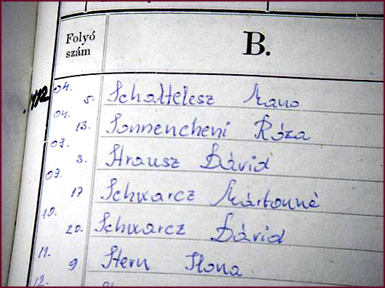 Folyó szám
B.
04. 5. Schaltelesz Mano
04. 13. Sonnencheni Róza
03. 3. Strausz Dávid
03. 17 Schwarcz Mártonné
10. 20. Schwarcz Dávid
11. 9 Stern Ilona
12.